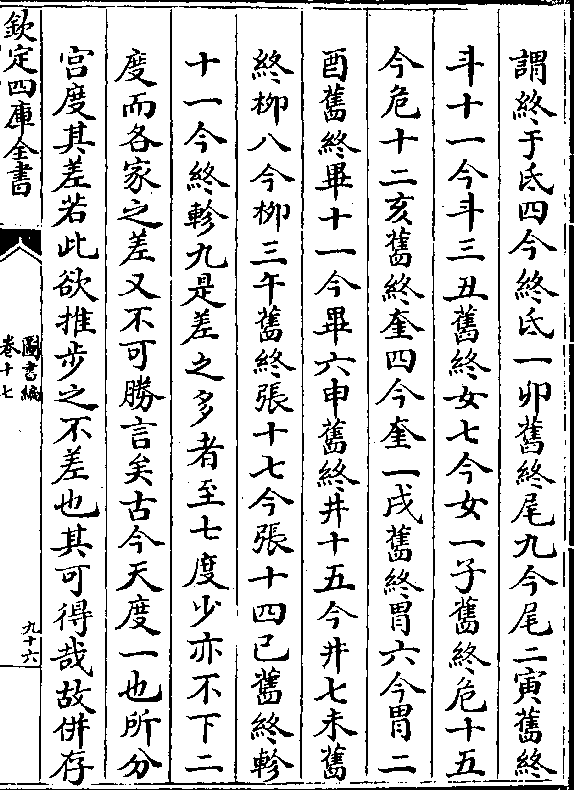 謂終于氐四今終氐一卯舊終尾九今尾二寅舊終
斗十一今斗三丑舊終女七今女一子舊終危十五
今危十二亥舊終奎四今奎一戌舊終胃六今胃二
酉舊終畢十一今畢六申舊終井十五今井七未舊
終柳八今柳三午舊終張十七今張十四巳舊終軫
十一今終軫九是差之多者至七度少亦不下二
度而各家之差又不可勝言矣古今天度一也所分
宫度其差若此欲推步之不差也其可得哉故併存
欽定四庫全書
圖書編
卷十七
九十六